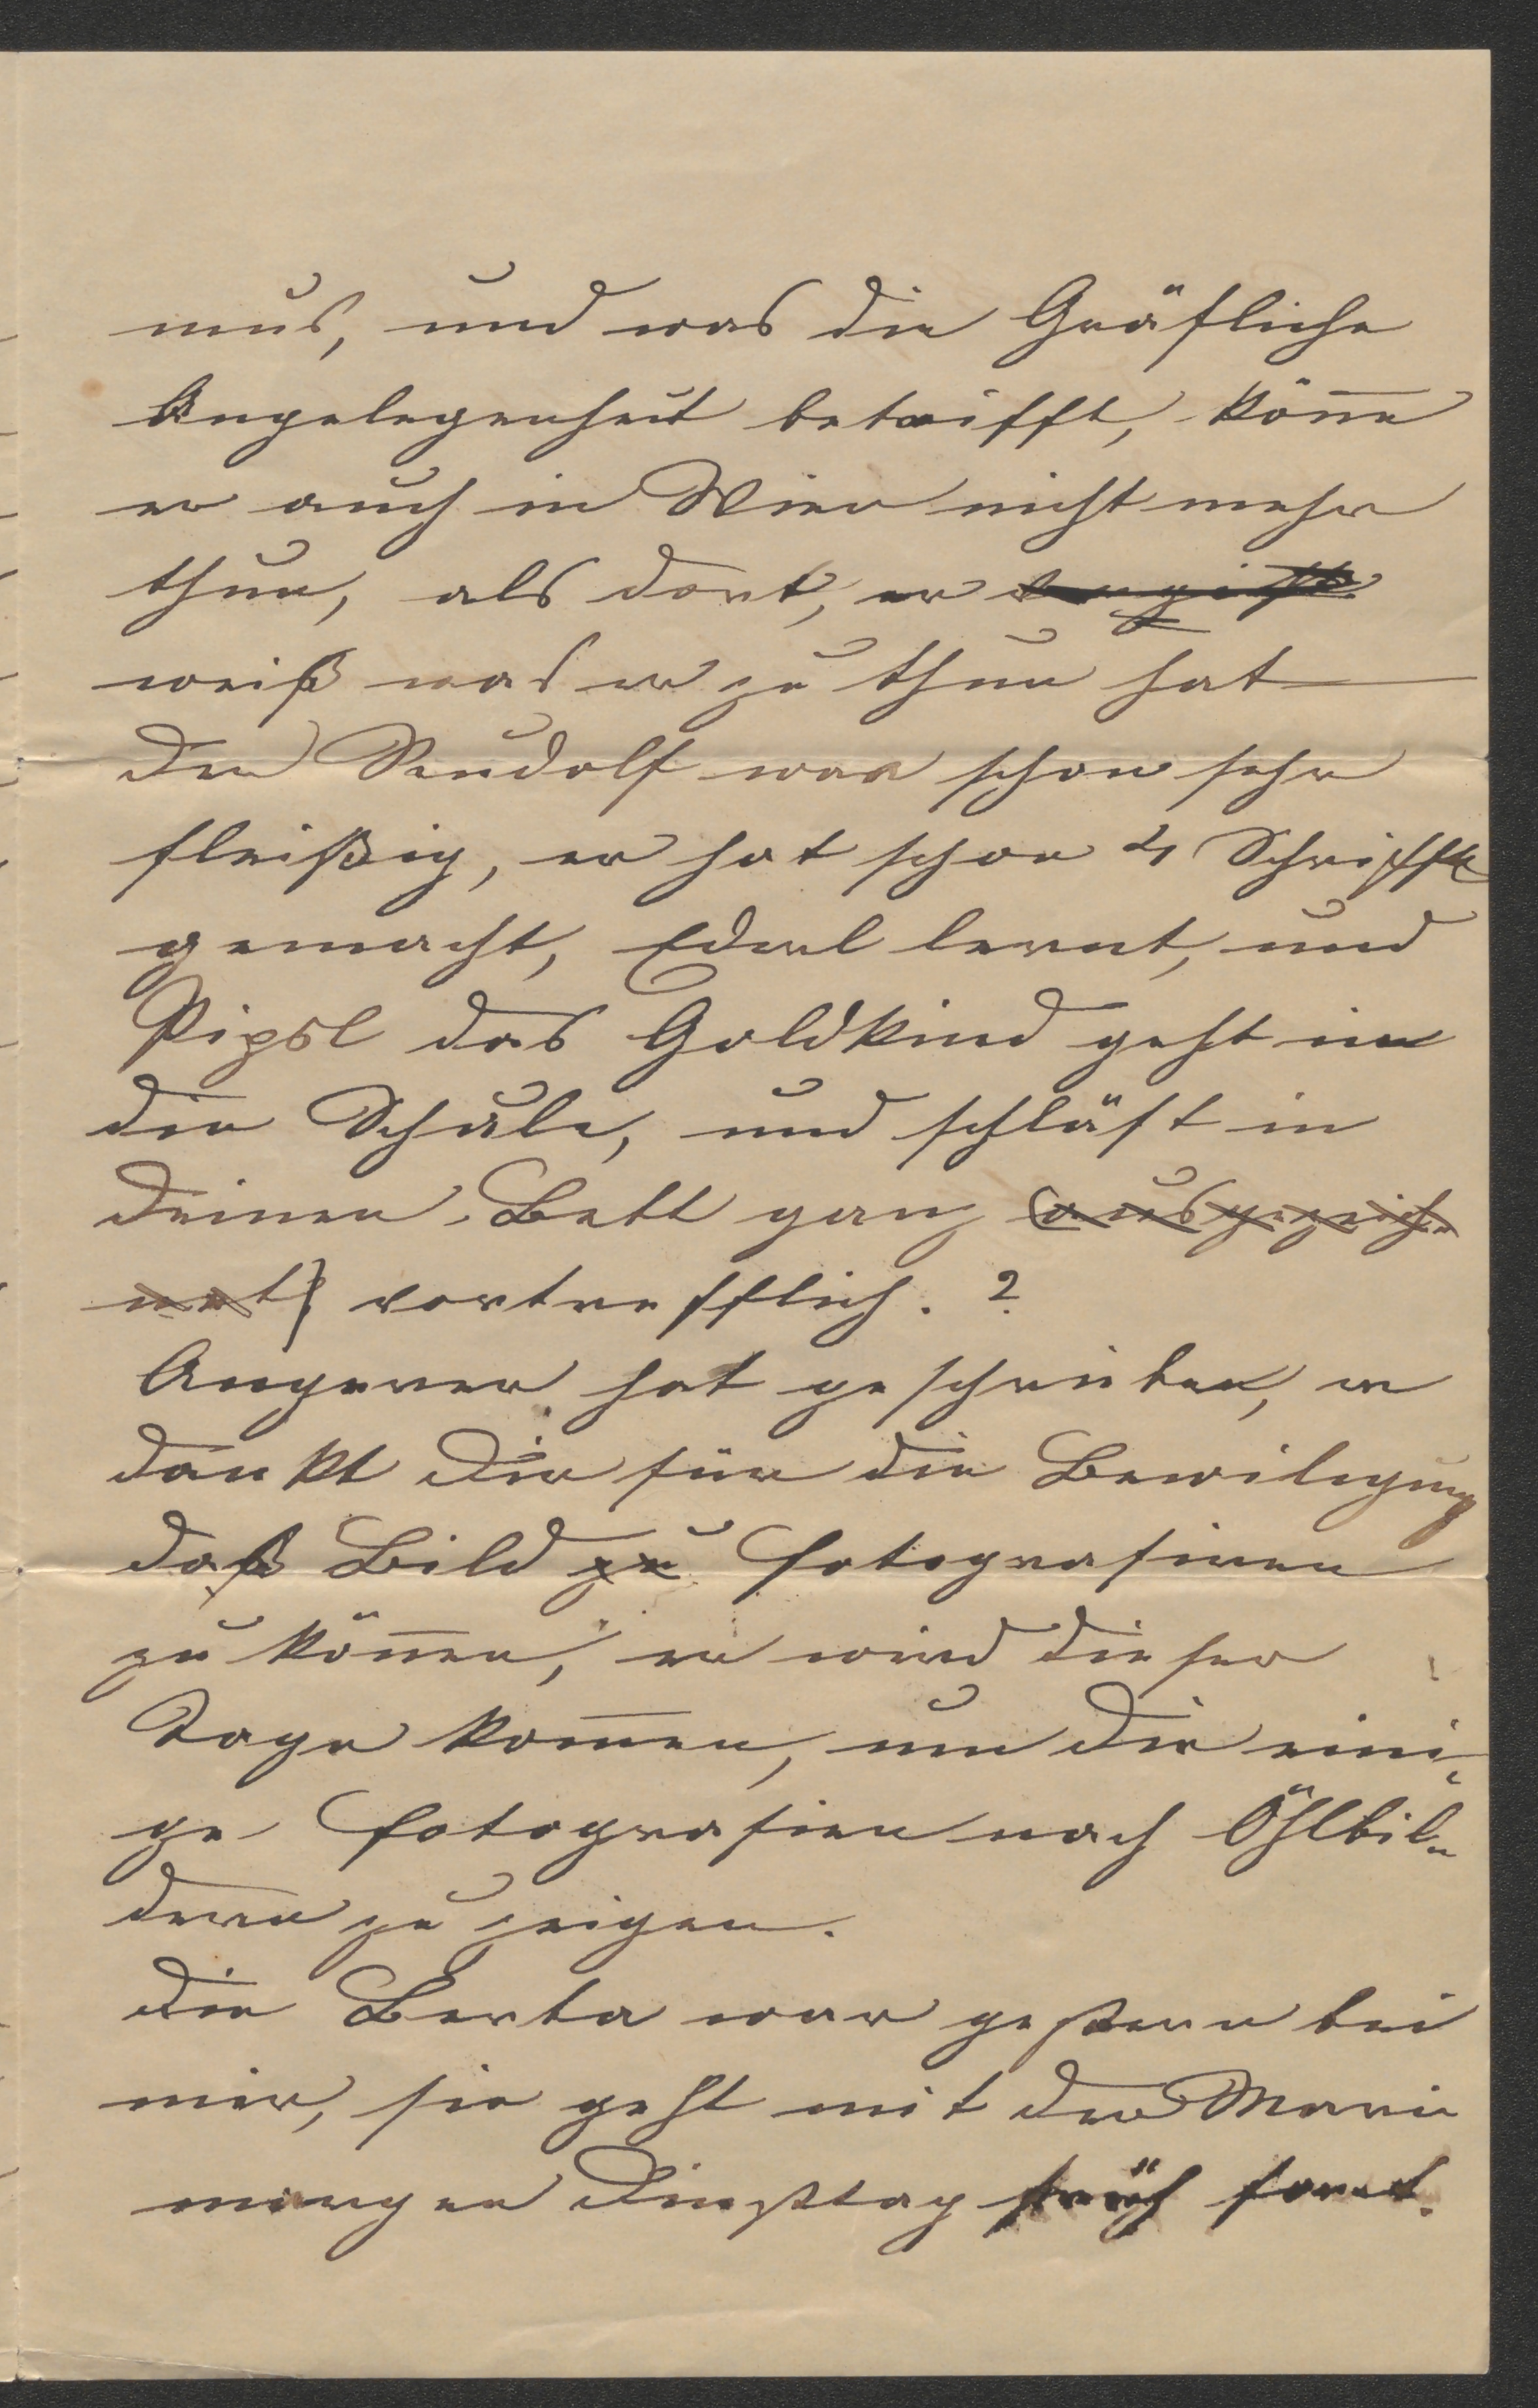 mus, und was die Gräfliche
Angelegenheit betrifft, könne
er auch in Wien nicht mehr
thun, als dort, er
weiß was er zu thun hat
Der Rudolf war schon sehr
fleißig, er hat schon 4 Schriften
gemacht, Ederl lernt, und
Pipsl das Goldkind geht in
die Schule, und schläft in
deinen Bett ganz (ausgezeich-
net) vortrefflich. ?
Angerer hat geschrieben, er
dankt Dir für die Bewiligung
daß Bild zu fotografiren
zu können, er wird dieser
Tage kommen, um Dir eini-
ge Fotografien nach Öhlbil-
dern zu zeigen.
Die Berta war gestern bei
mir, sie geht mit der Marie
morgen Dinstag früh fort.